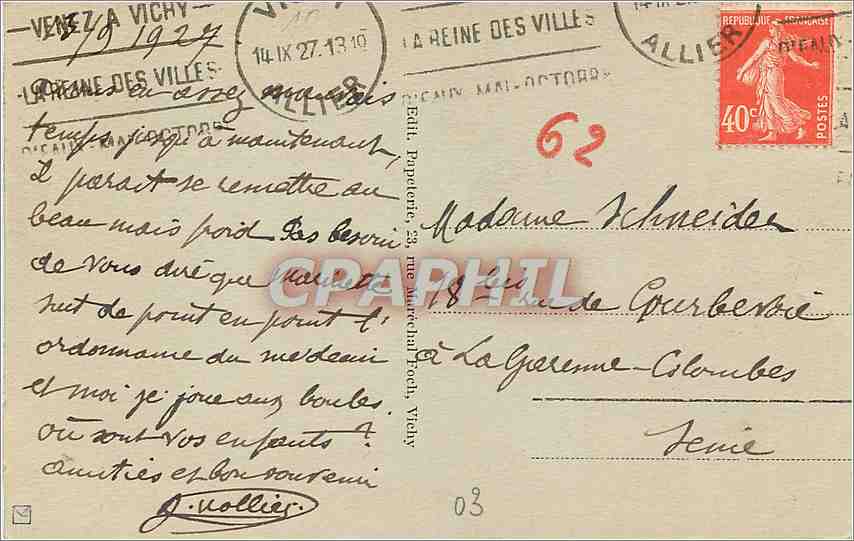 VENEZ A VICHY
LA REINE DES VILLES
D'EAUX MAI-OCTOBRE
14 IX 27.13
ALLIER
LA REINE DES VILLES
D'EAUX MAI-OCTOBRE
ALLIER
REPUBLIQUE FRANÇAISE
40c
POSTES
1927
62
avons eu assez mauvais
temps jusqu'à maintenant,
Il parait se remettre au
beau mais froid Pas besoin
de vous dire que Mariette
suit de point en point l'
ordonnance du médecin
et moi je joue aux boules.
où sont vos enfants ?
amitiés et bon souvenir
Edit. Papeterie, 23, rue Maréchal Foch, Vichy
Madame Schneider
18 bis rue de Courbevoie
à La Garenne-Colombes
Seine
03
CPARHIL